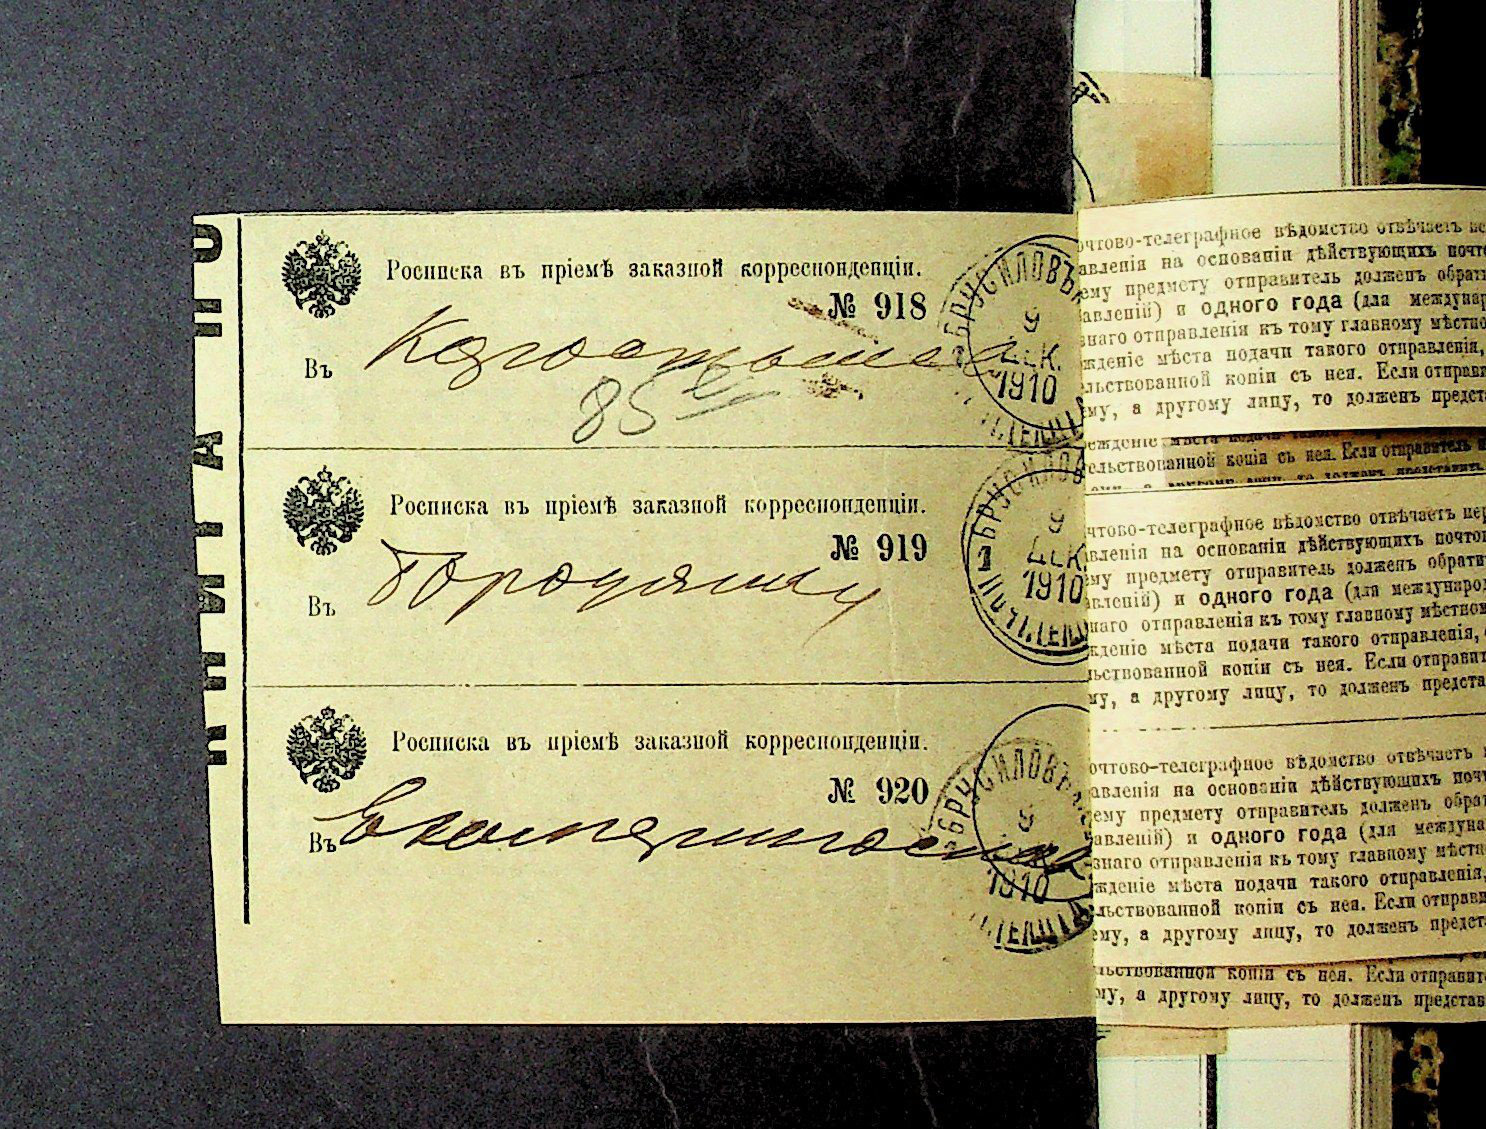 Росписка въ пріемѣ заказной корреспонденціи.
№ 918
Въ Коростышев
85
БРУСИЛОВЪ
9
ДЕК.
1910
Росписка въ пріемѣ заказной корреспонденціи.
№ 919
Въ Городящу
БРУСИЛОВ
9
ДЕК.
1910
Росписка въ пріемѣ заказной корреспонденціи.
№ 920
Въ Екатеринослав
БРУСИЛОВЪ
9
1910
КНИГА ПО
очтово-телеграфное вѣдомство отвѣчаетъ
авленія на основаніи дѣйствующихъ почто
ему предмету отправитель долженъ обрат
авленій) и одного года (для междунар
знаго отправленія къ тому главному мѣстно
жденіе мѣста подачи такого отправленія,
льствованной копіи съ нея. Если отправи
ему, а другому лицу, то долженъ предст
ежденіе мѣста подачи такого
ельствованной копіи съ нея. Если отправитель
чтово-телеграфное вѣдомство отвѣчаетъ пер
вленія на основаніи дѣйствующихъ почто
му предмету отправитель долженъ обрати
вленій) и одного года (для международ
наго отправленія къ тому главному мѣстно
жденіе мѣста подачи такого отправленія,
ьствованной копіи съ нея. Если отправит
му, а другому лицу, то долженъ предста
очтово-телеграфное вѣдомство отвѣчаетъ
авленія на основаніи дѣйствующихъ почт
ему предмету отправитель долженъ обрат
авленій) и одного года (для междуна
знаго отправленія къ тому главному мѣстн
жденіе мѣста подачи такого отправленія,
льствованной копіи съ нея. Если отправи
ему, а другому лицу, то долженъ предст
льствованной копіи съ нея. Если отправит
му, а другому лицу, то долженъ представ